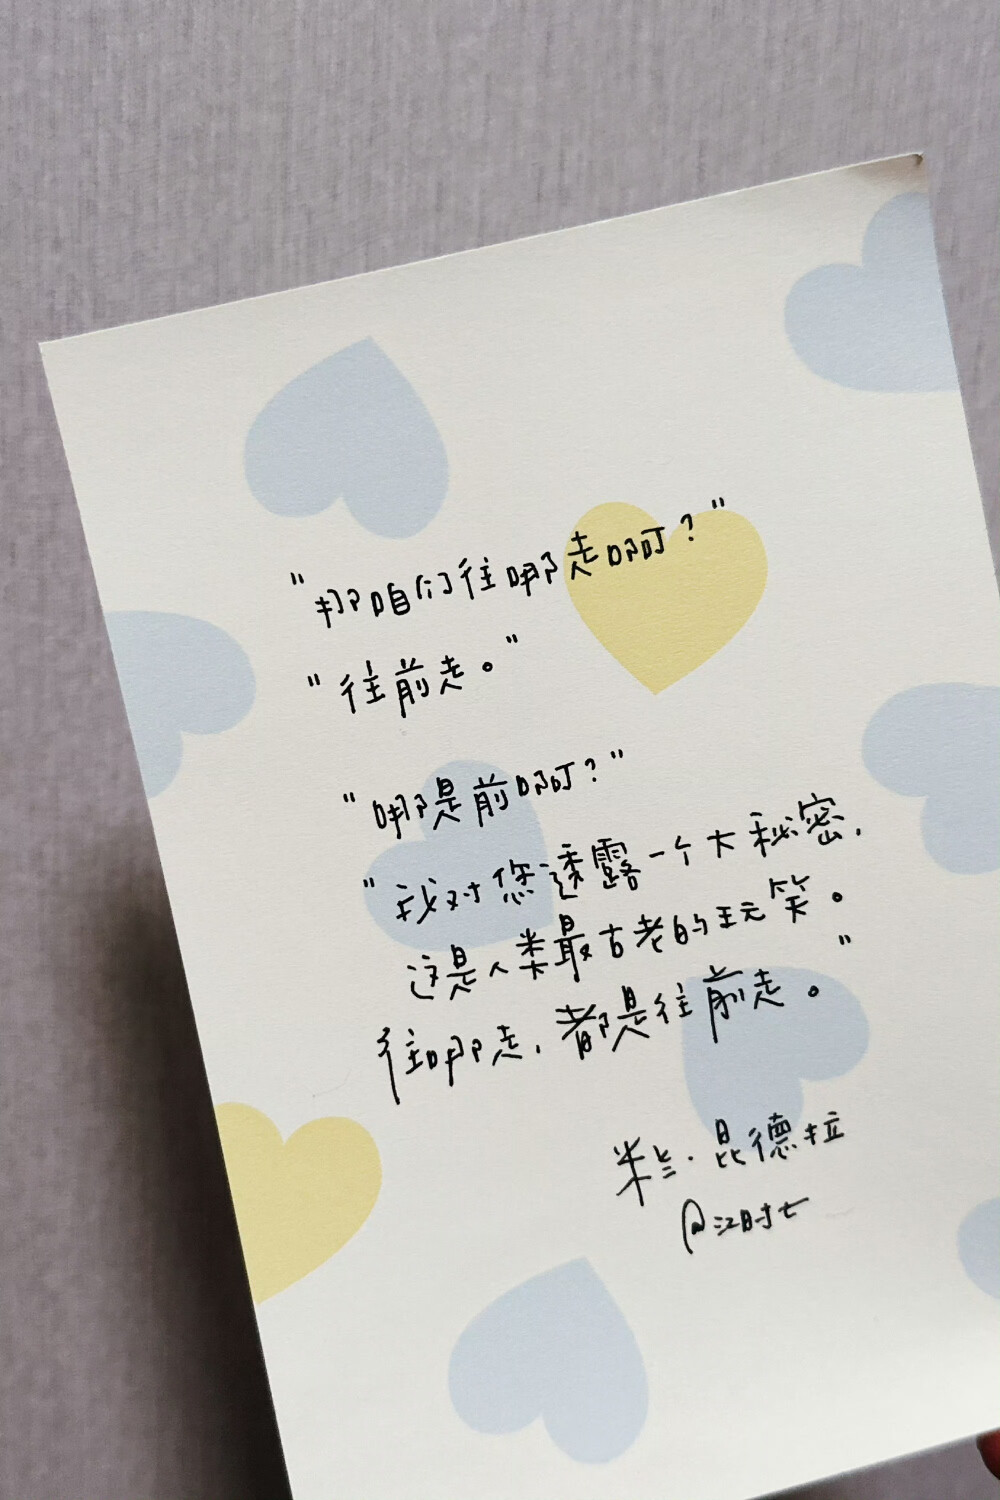 "那咱们往哪走啊?"
"往前走。"
"哪是前啊?"
"我对您透露一个大秘密,
这是人类最古老的玩笑。
往哪走,都是往前走。"
米兰·昆德拉
@江时七